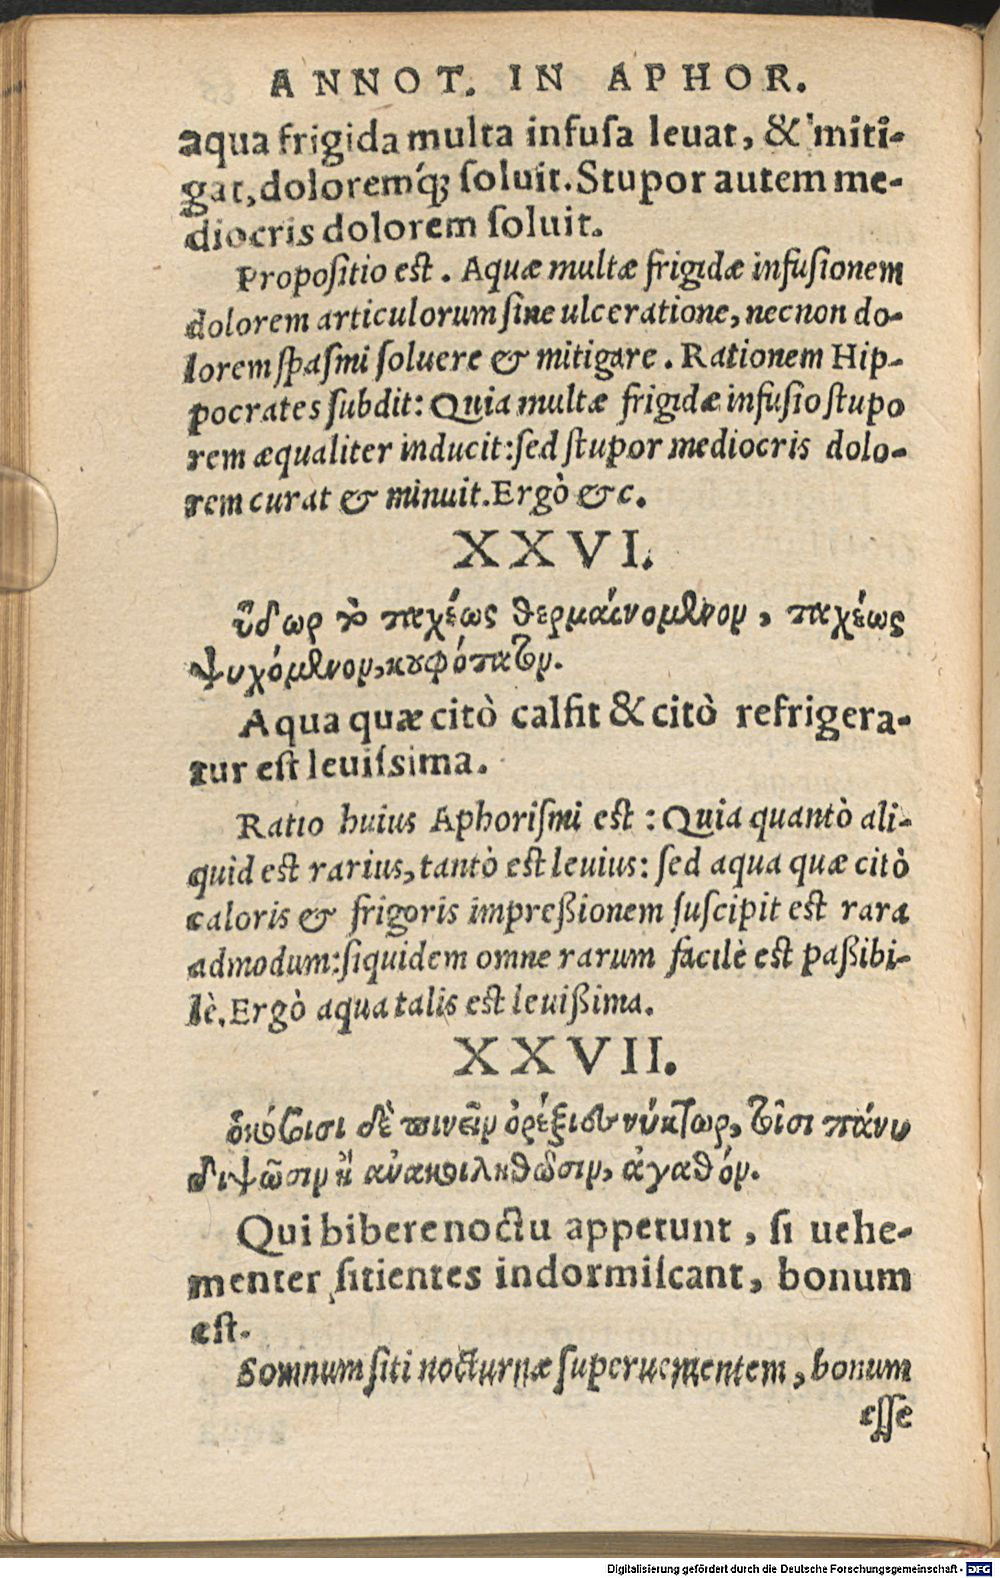 ANNOT. IN APHOR.
aqua frigida multa infuſa leuat, & miti-
gat, doloremq́; ſoluit. Stupor autem me-
diocris dolorem ſoluit.
Propoſitio eſt. Aquæ multæ frigidæ infuſionem
dolorem articulorum ſine ulceratione, necnon do-
lorem ſpaſmi ſoluere & mitigare. Rationem Hip-
pocrates ſubdit: Quia multæ frigidæ infuſio ſtupo
rem æqualiter inducit: ſed ſtupor mediocris dolo-
rem curat & minuit. Ergò &c.
XXVI.
ὕδωρ τὸ ταχέως θερμαινομενον, ταχέως
ψυχόμενον, κουφότατον.
Aqua quæ citò calfit & citò refrigera-
tur eſt leuiſsima.
Ratio huius Aphoriſmi eſt: Quia quantò ali-
quid eſt rarius, tantò eſt leuius: ſed aqua quæ citò
caloris & frigoris impreßionem ſuſcipit eſt rara
admodum: ſiquidem omne rarum facilè eſt paßibi-
lè. Ergò aqua talis eſt leuißima.
XXVII.
ὁκόσοισι δὲ πινεῖν ὀρέξις νύκτωρ, τοῖσι πάνυ
διψῶσιν ἢν ἀνακοιμηθῶσιν, ἀγαθόν.
Qui bibere noctu appetunt, ſi uehe-
menter ſitientes indormiſcant, bonum
eſt.
Somnum ſiti nocturnæ ſuperuementem, bonum
eſſe
Digitalisierung gefördert durch die Deutsche Forschungsgemeinschaft - DFG